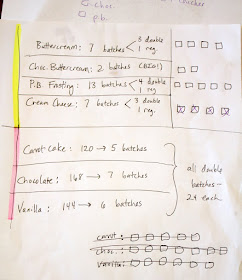 choc.
p.b.
Buttercream: 7 batches < 3 double
1 reg.
Choc. Buttercream: 2 batches (BIG!)
P.B. Frosting: 13 batches < 4 double
1 reg.
Cream Cheese: 7 batches < 3 double
1 reg.
Carrot Cake: 120 → 5 batches
Chocolate: 168 → 7 batches
Vanilla: 144 → 6 batches
all double
batches -
24 each.
carrot:
choc.:
Vanilla: